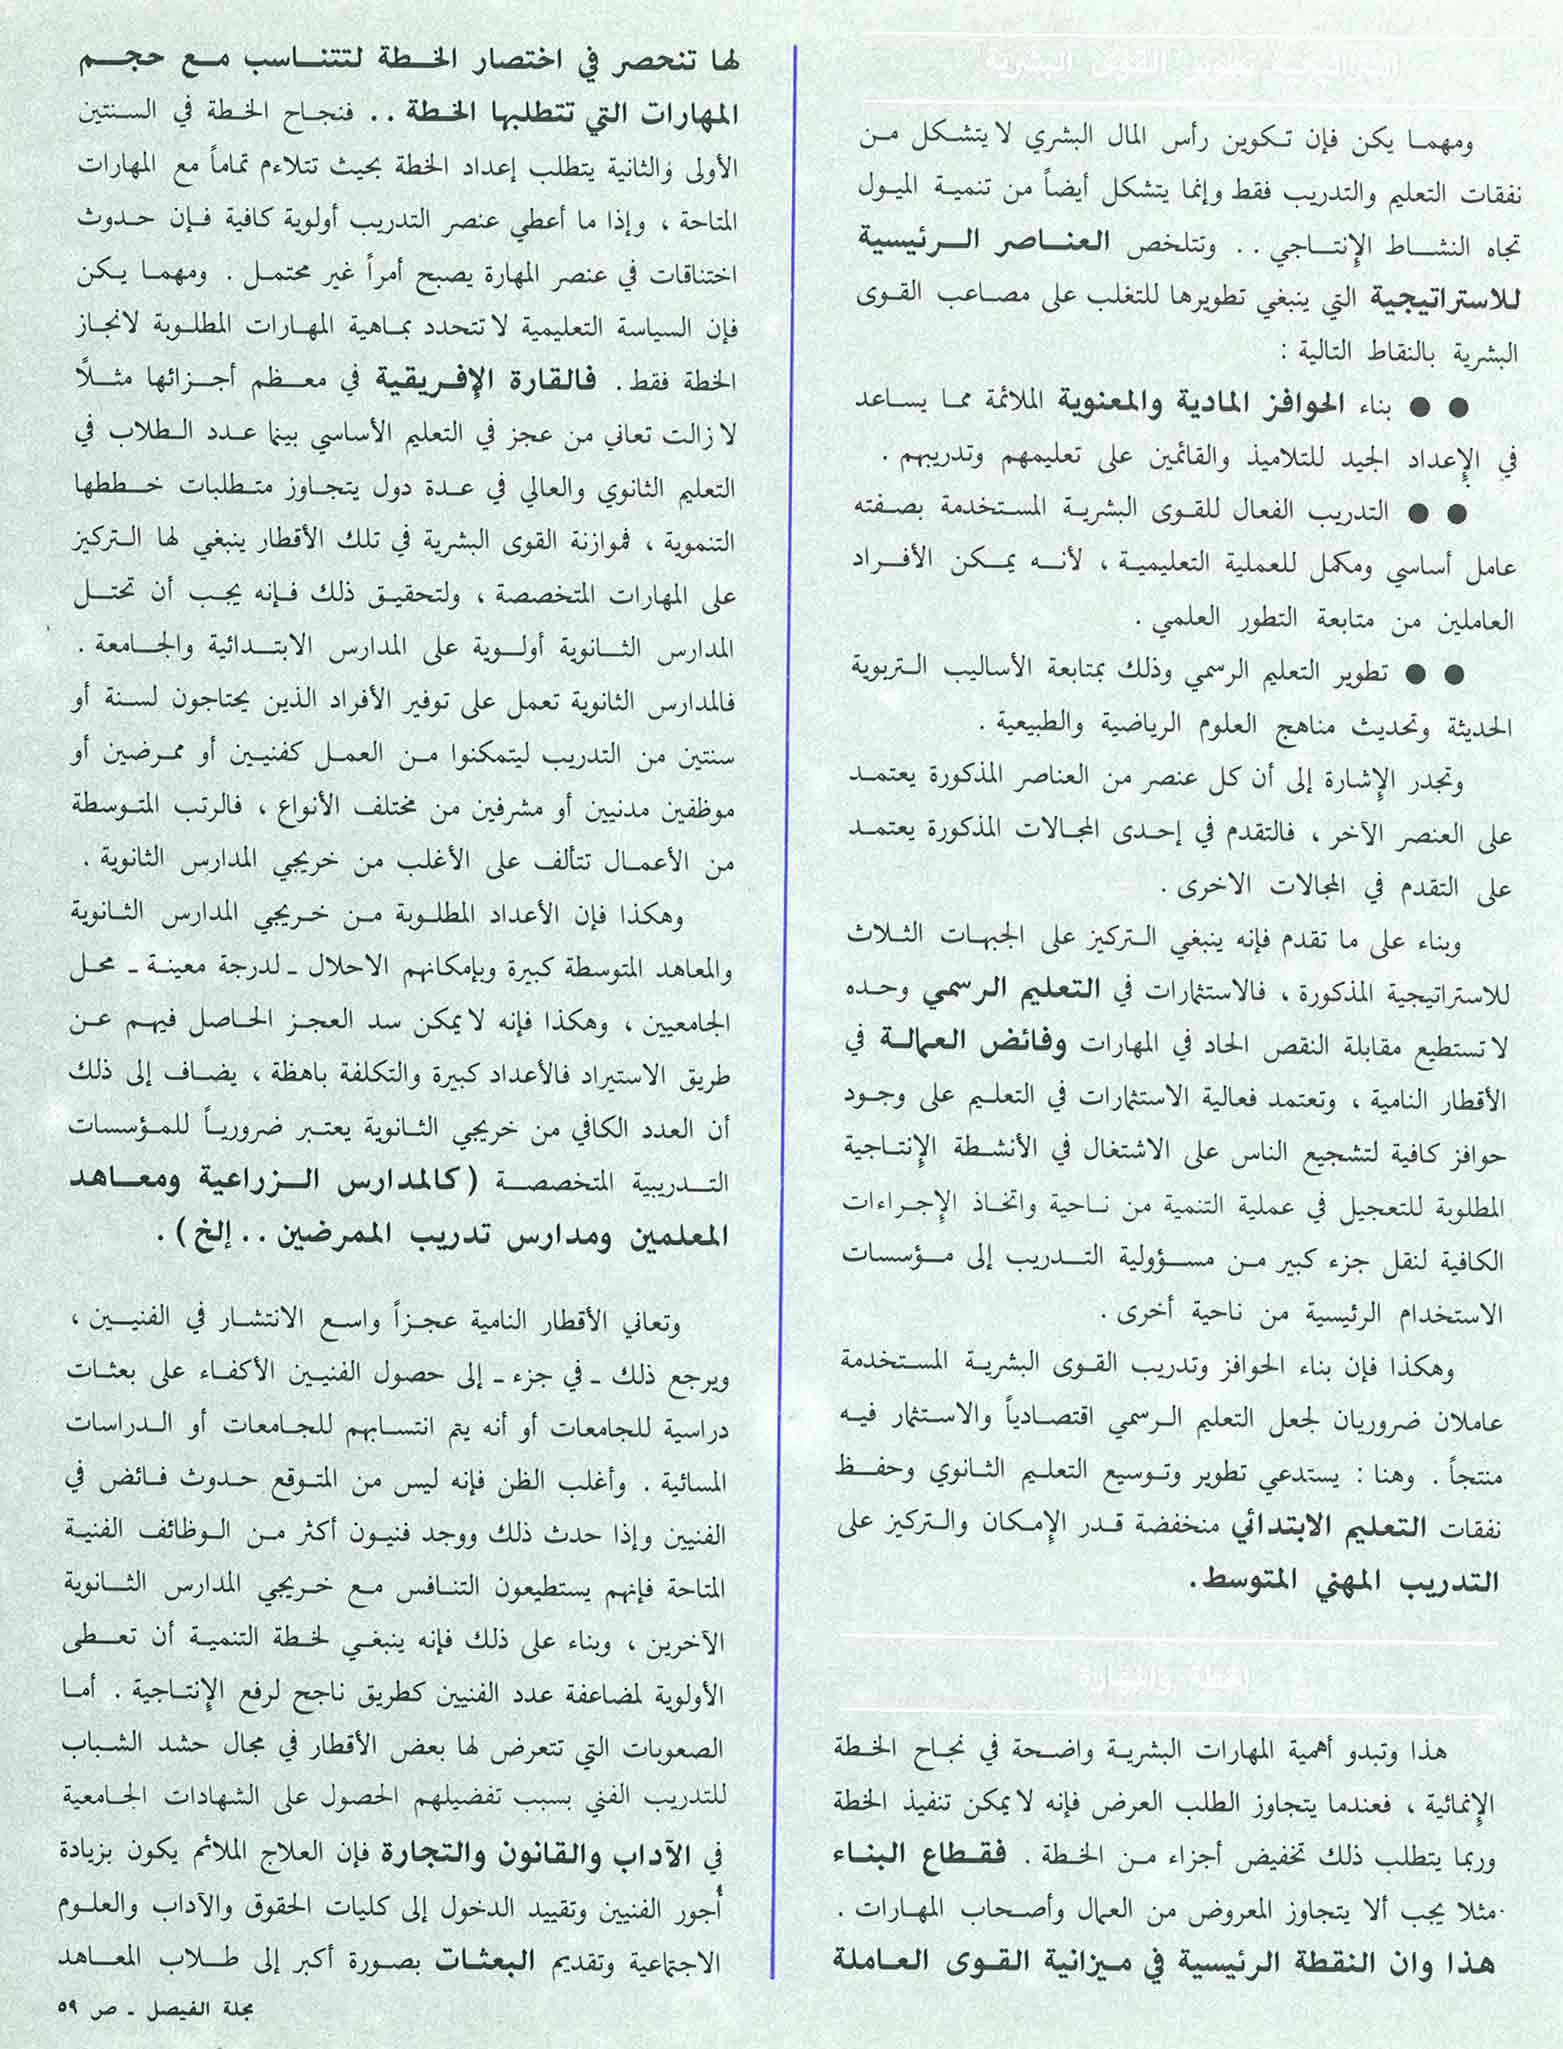 القوى البشرية
ومهما يكن فإن تكوين رأس المال البشري لا يتشكل من
نفقات التعليم والتدريب فقط وإنما يتشكل أيضاً من تنمية الميول
تجاه النشاط الإنتاجي . . وتتلخص العناصر الرئيسية
للاستراتيجية التي ينبغي تطويرها للتغلب على مصاعب القوى
البشرية بالنقاط التالية :
●● بناء الحوافز المادية والمعنوية الملائمة مما يساعد
في الإعداد الجيد للتلاميذ والقائمين على تعليمهم وتدريبهم .
●● التدريب الفعال للقوى البشرية المستخدمة بصفته
عامل أساسي ومكمل للعملية التعليمية ، لأنه يمكن الأفراد
العاملين من متابعة التطور العلمي .
●● تطوير التعليم الرسمي وذلك بمتابعة الأساليب التربوية
الحديثة وتحديث مناهج العلوم الرياضية والطبيعية .
وتجدر الإشارة إلى أن كل عنصر من العناصر المذكورة يعتمد
على العنصر الآخر ، فالتقدم في إحدى المجالات المذكورة يعتمد
على التقدم في المجالات الاخرى .
وبناء على ما تقدم فإنه ينبغي التركيز على الجبهات الثلاث
للاستراتيجية المذكورة ، فالاستثمارات في التعليم الرسمي وحده
لا تستطيع مقابلة النقص الحاد في المهارات وفائض العمالة في
الأقطار النامية ، وتعتمد فعالية الاستثمارات في التعليم على وجود
حوافز كافية لتشجيع الناس على الاشتغال في الأنشطة الإنتاجية
المطلوبة للتعجيل في عملية التنمية من ناحية واتخاذ الإجراءات
الكافية لنقل جزء كبير من مسؤولية التدريب إلى مؤسسات
الاستخدام الرئيسية من ناحية أخرى .
وهكذا فإن بناء الحوافز وتدريب القوى البشرية المستخدمة
عاملان ضروريان لجعل التعليم الرسمي اقتصادياً والاستثمار فيه
منتجاً . وهنا : يستدعي تطوير وتوسيع التعليم الثانوي وحفظ
نفقات التعليم الابتدائي منخفضة قدر الإمكان والتركيز على
التدريب المهني المتوسط .
الخطة والمهارة
هذا وتبدو أهمية المهارات البشرية واضحة في نجاح الخطة
الإنمائية ، فعندما يتجاوز الطلب العرض فإنه لا يمكن تنفيذ الخطة
وربما يتطلب ذلك تخفيض أجزاء من الخطة . فقطاع البناء
مثلا يجب ألا يتجاوز المعروض من العمال وأصحاب المهارات .
هذا وان النقطة الرئيسية في ميزانية القوى العاملة
لها تنحصر في اختصار الخطة لتتناسب مع حجم
المهارات التي تتطلبها الخطة . . فنجاح الخطة في السنتين
الأولى والثانية يتطلب إعداد الخطة بحيث تتلاءم تماماً مع المهارات
المتاحة ، وإذا ما أعطي عنصر التدريب أولوية كافية فإن حدوث
اختناقات في عنصر المهارة يصبح أمراً غير محتمل . ومهما يكن
فإن السياسة التعليمية لا تتحدد بماهية المهارات المطلوبة لانجاز
الخطة فقط . فالقارة الإفريقية في معظم أجزائها مثلاً
لا زالت تعاني من عجز في التعليم الأساسي بينما عدد الطلاب في
التعليم الثانوي والعالي في عدة دول يتجاوز متطلبات خططها
التنموية ، فموازنة القوى البشرية في تلك الأقطار ينبغي لها التركيز
على المهارات المتخصصة ، ولتحقيق ذلك فإنه يجب أن تحتل
المدارس الثانوية أولوية على المدارس الابتدائية والجامعة .
فالمدارس الثانوية تعمل على توفير الأفراد الذين يحتاجون لسنة أو
سنتين من التدريب ليتمكنوا من العمل كفنيين أو ممرضين أو
موظفين مدنيين أو مشرفين من مختلف الأنواع ، فالرتب المتوسطة
من الأعمال تتألف على الأغلب من خريجي المدارس الثانوية .
وهكذا فإن الأعداد المطلوبة من خريجي المدارس الثانوية
والمعاهد المتوسطة كبيرة وبإمكانهم الاحلال ـ لدرجة معينة ـ محل
الجامعيين ، وهكذا فإنه لا يمكن سد العجز الحاصل فيهم عن
طريق الاستيراد فالأعداد كبيرة والتكلفة باهظة ، يضاف إلى ذلك
أن العدد الكافي من خريجي الثانوية يعتبر ضرورياً للمؤسسات
التدريبية المتخصصة ( كالمدارس الزراعية ومعاهد
المعلمين ومدارس تدريب الممرضين . . إلخ ) .
وتعاني الأقطار النامية عجزاً واسع الانتشار في الفنيين ،
ويرجع ذلك ـ في جزء ـ إلى حصول الفنيين الأكفاء على بعثات
دراسية للجامعات أو أنه يتم انتسابهم للجامعات أو الدراسات
المسائية . وأغلب الظن فإنه ليس من المتوقع حدوث فائض في
الفنيين وإذا حدث ذلك ووجد فنيون أكثر من الوظائف الفنية
المتاحة فإنهم يستطيعون التنافس مع خريجي المدارس الثانوية
الآخرين ، وبناء على ذلك فإنه ينبغي لخطة التنمية أن تعطى
الأولوية لمضاعفة عدد الفنيين كطريق ناجح لرفع الإنتاجية . أما
الصعوبات التي تتعرض لها بعض الأقطار في مجال حشد الشباب
للتدريب الفني بسبب تفضيلهم الحصول على الشهادات الجامعية
في الآداب والقانون والتجارة فإن العلاج الملائم يكون بزيادة
أجور الفنيين وتقييد الدخول إلى كليات الحقوق والآداب والعلوم
الاجتماعية وتقديم البعثات بصورة أكبر إلى طلاب المعاهد
مجلة الفيصل ـ ص ٥٩